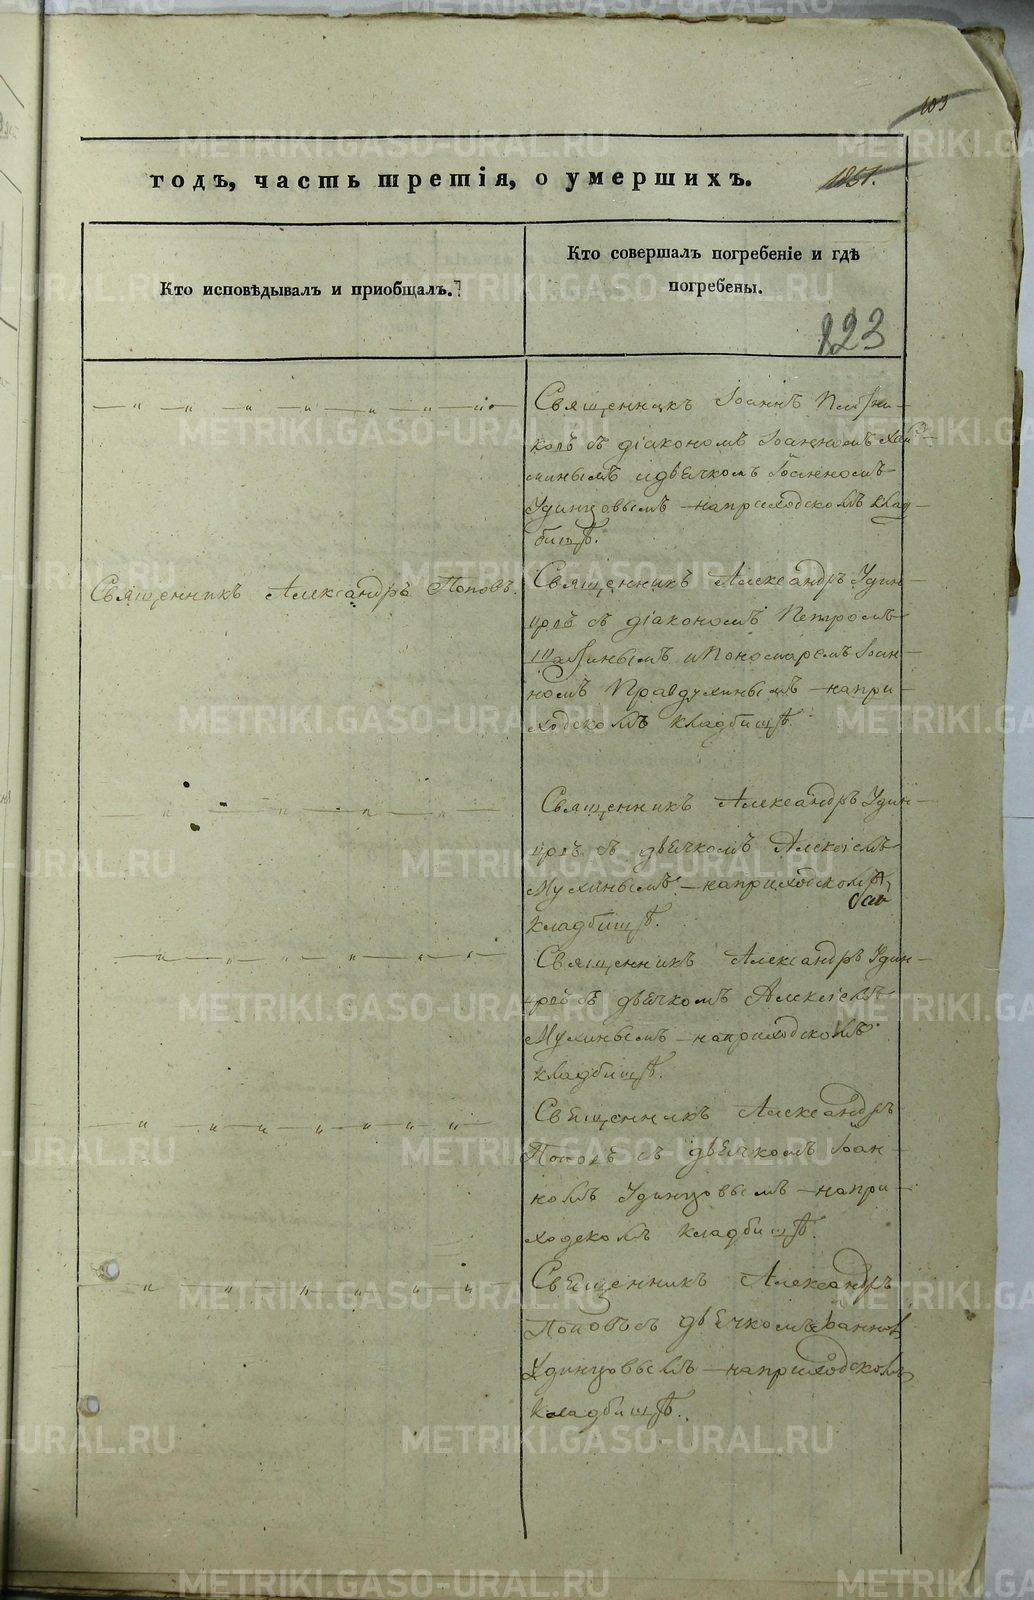 103
годъ, часть третія, о умершихъ.
1851.
Кто исповѣдывалъ и приобщалъ.
Кто совершалъ погребеніе и гдѣ
погребены.
123
Священникъ Іоаннъ
съ діакономъ Іоанномъ
и дьячкомъ Іоанномъ
Удинцовымъ на приходскомъ клад-
бищѣ.
Священникъ Александръ Поповъ.
Священникъ Александръ Удин-
цовъ съ діакономъ Петромъ
и Пономаремъ Іоан-
номъ Правдухинымъ на при-
ходскомъ кладбищѣ.
Священникъ Александръ Удин-
цовъ съ дьячкомъ Алексіемъ
Мухинымъ на приходскомъ
кладбищѣ.
Священникъ Александръ Удин-
цовъ съ дьячкомъ Алексіемъ
Мухинымъ на приходскомъ
кладбищѣ.
Священникъ Александръ
Поповъ съ дьячкомъ Іоан-
номъ Удинцовымъ на при-
ходскомъ кладбищѣ.
Священникъ Александръ
Поповъ съ дьячкомъ Іоанномъ
Удинцовымъ на приходскомъ
кладбищѣ.
METRIKI.GASO-URAL.RU